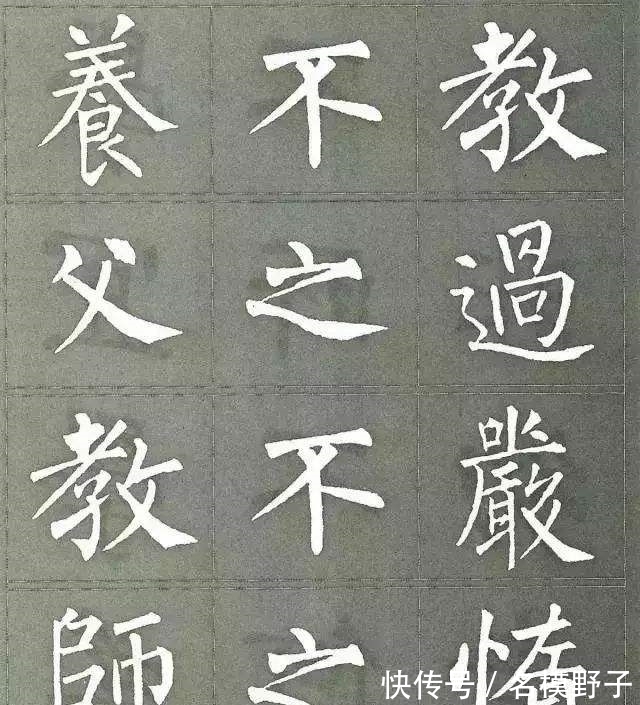 養不教
父之過
教不嚴
師之惰
快传号 / 名模野子